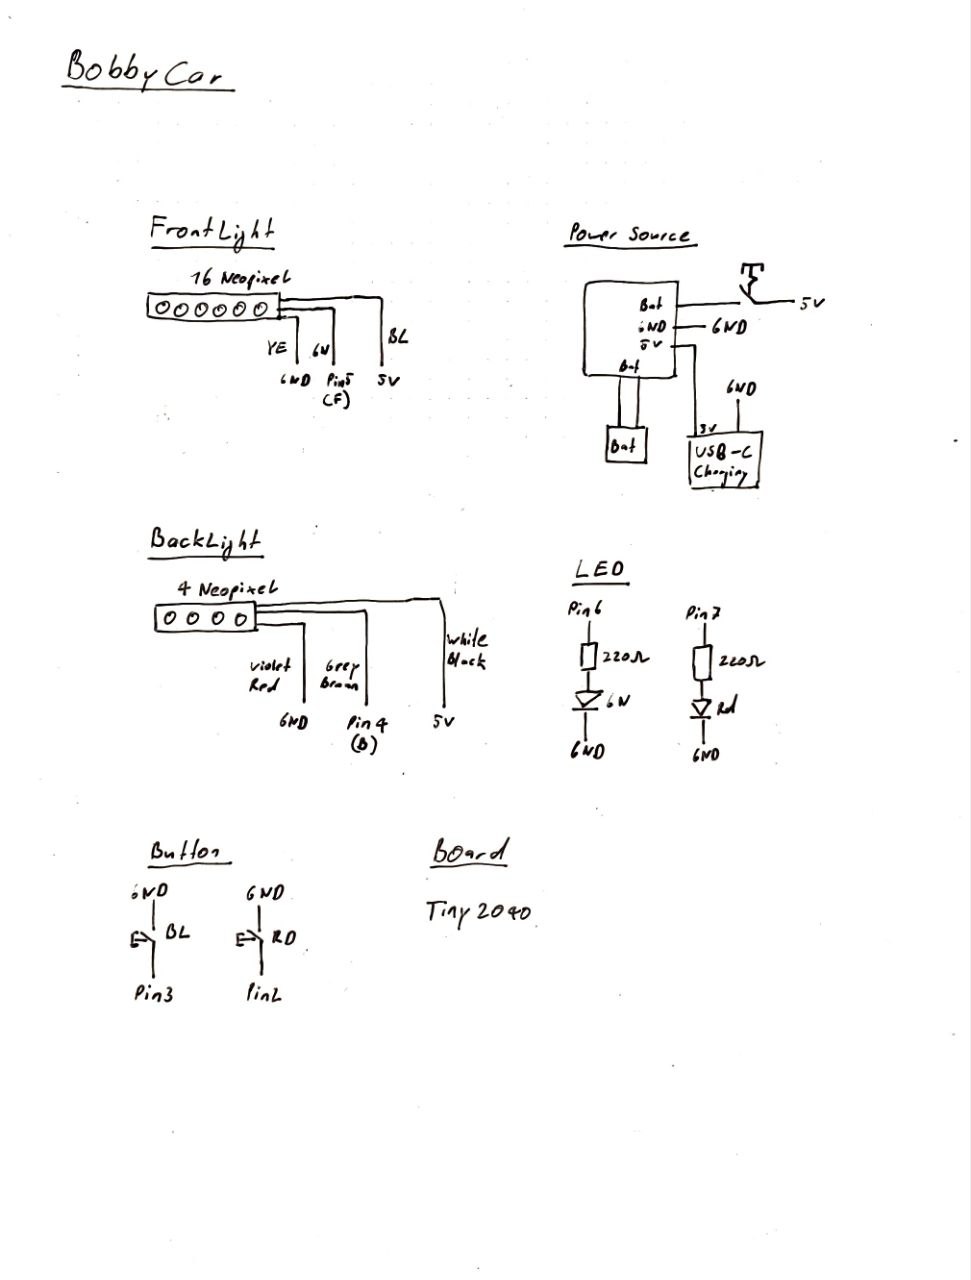 BobbyCar
FrontLight
16 Neopixel
YE
GN
BL
GND
Pin5
(F)
5V
Power Source
Bat
GND
5V
Bat
5V
GND
GND
Bat
5V
USB-C
Charging
BackLight
4 Neopixel
Violet
Red
Grey
Brown
White
Black
GND
Pin4
(B)
5V
LED
Pin6
Pin7
220Ω
220Ω
GN
Rd
GND
GND
Button
GND
GND
BL
RD
Pin3
Pin2
Board
Tiny2040